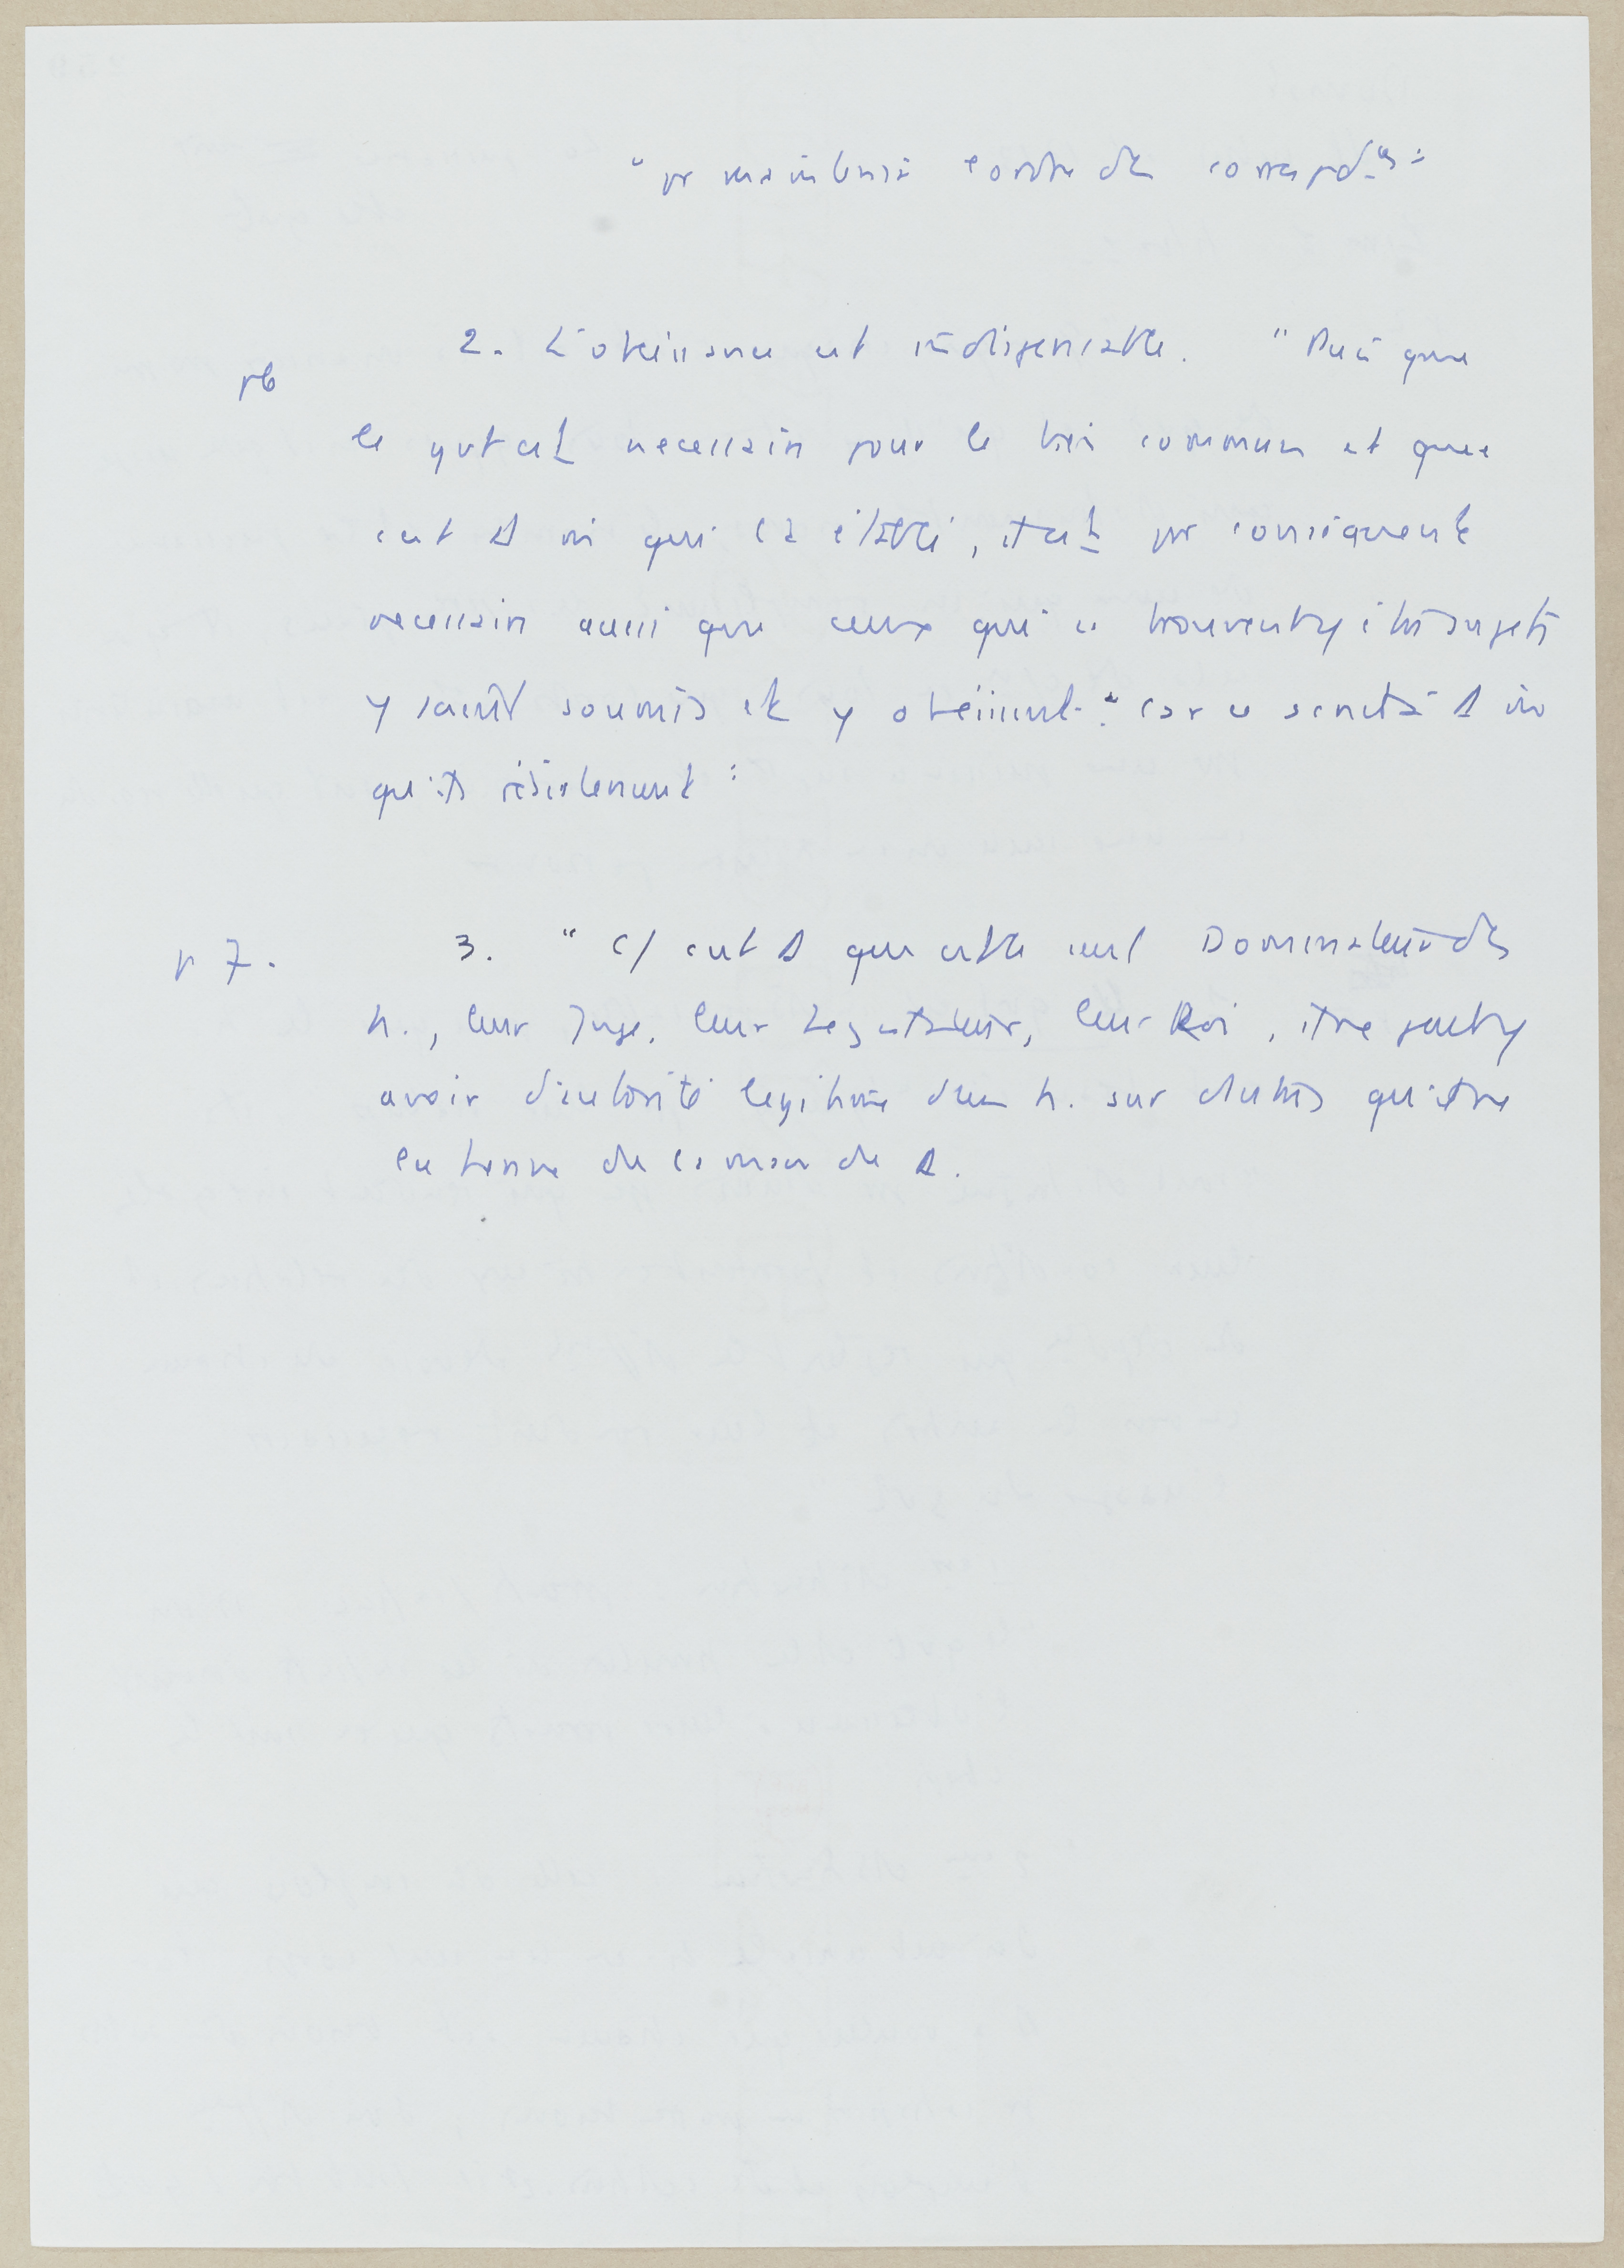 " pr maintenir l'ordre de ces corresp.ds "
2. L'obéissance est indispensable. " Puis que
p6
le gvt est necessaire pour le bien commun et que
c'est D. qui l'a établi, il est par consequent
necessaire aussi que ceux qui se trouvent y être sujets
y soient soumis et y obéissent : " car ce serait à D.
qu'ils résisteraient "
p 7.
3. " C/ c'est D que est le seul Dominateur des
h., leur Juge, leur Legislateur, leur Roi, il ne peut y
avoir d'autorité legitime d'un h. sur d'autres qu'il ne
la tienne de la main de D.